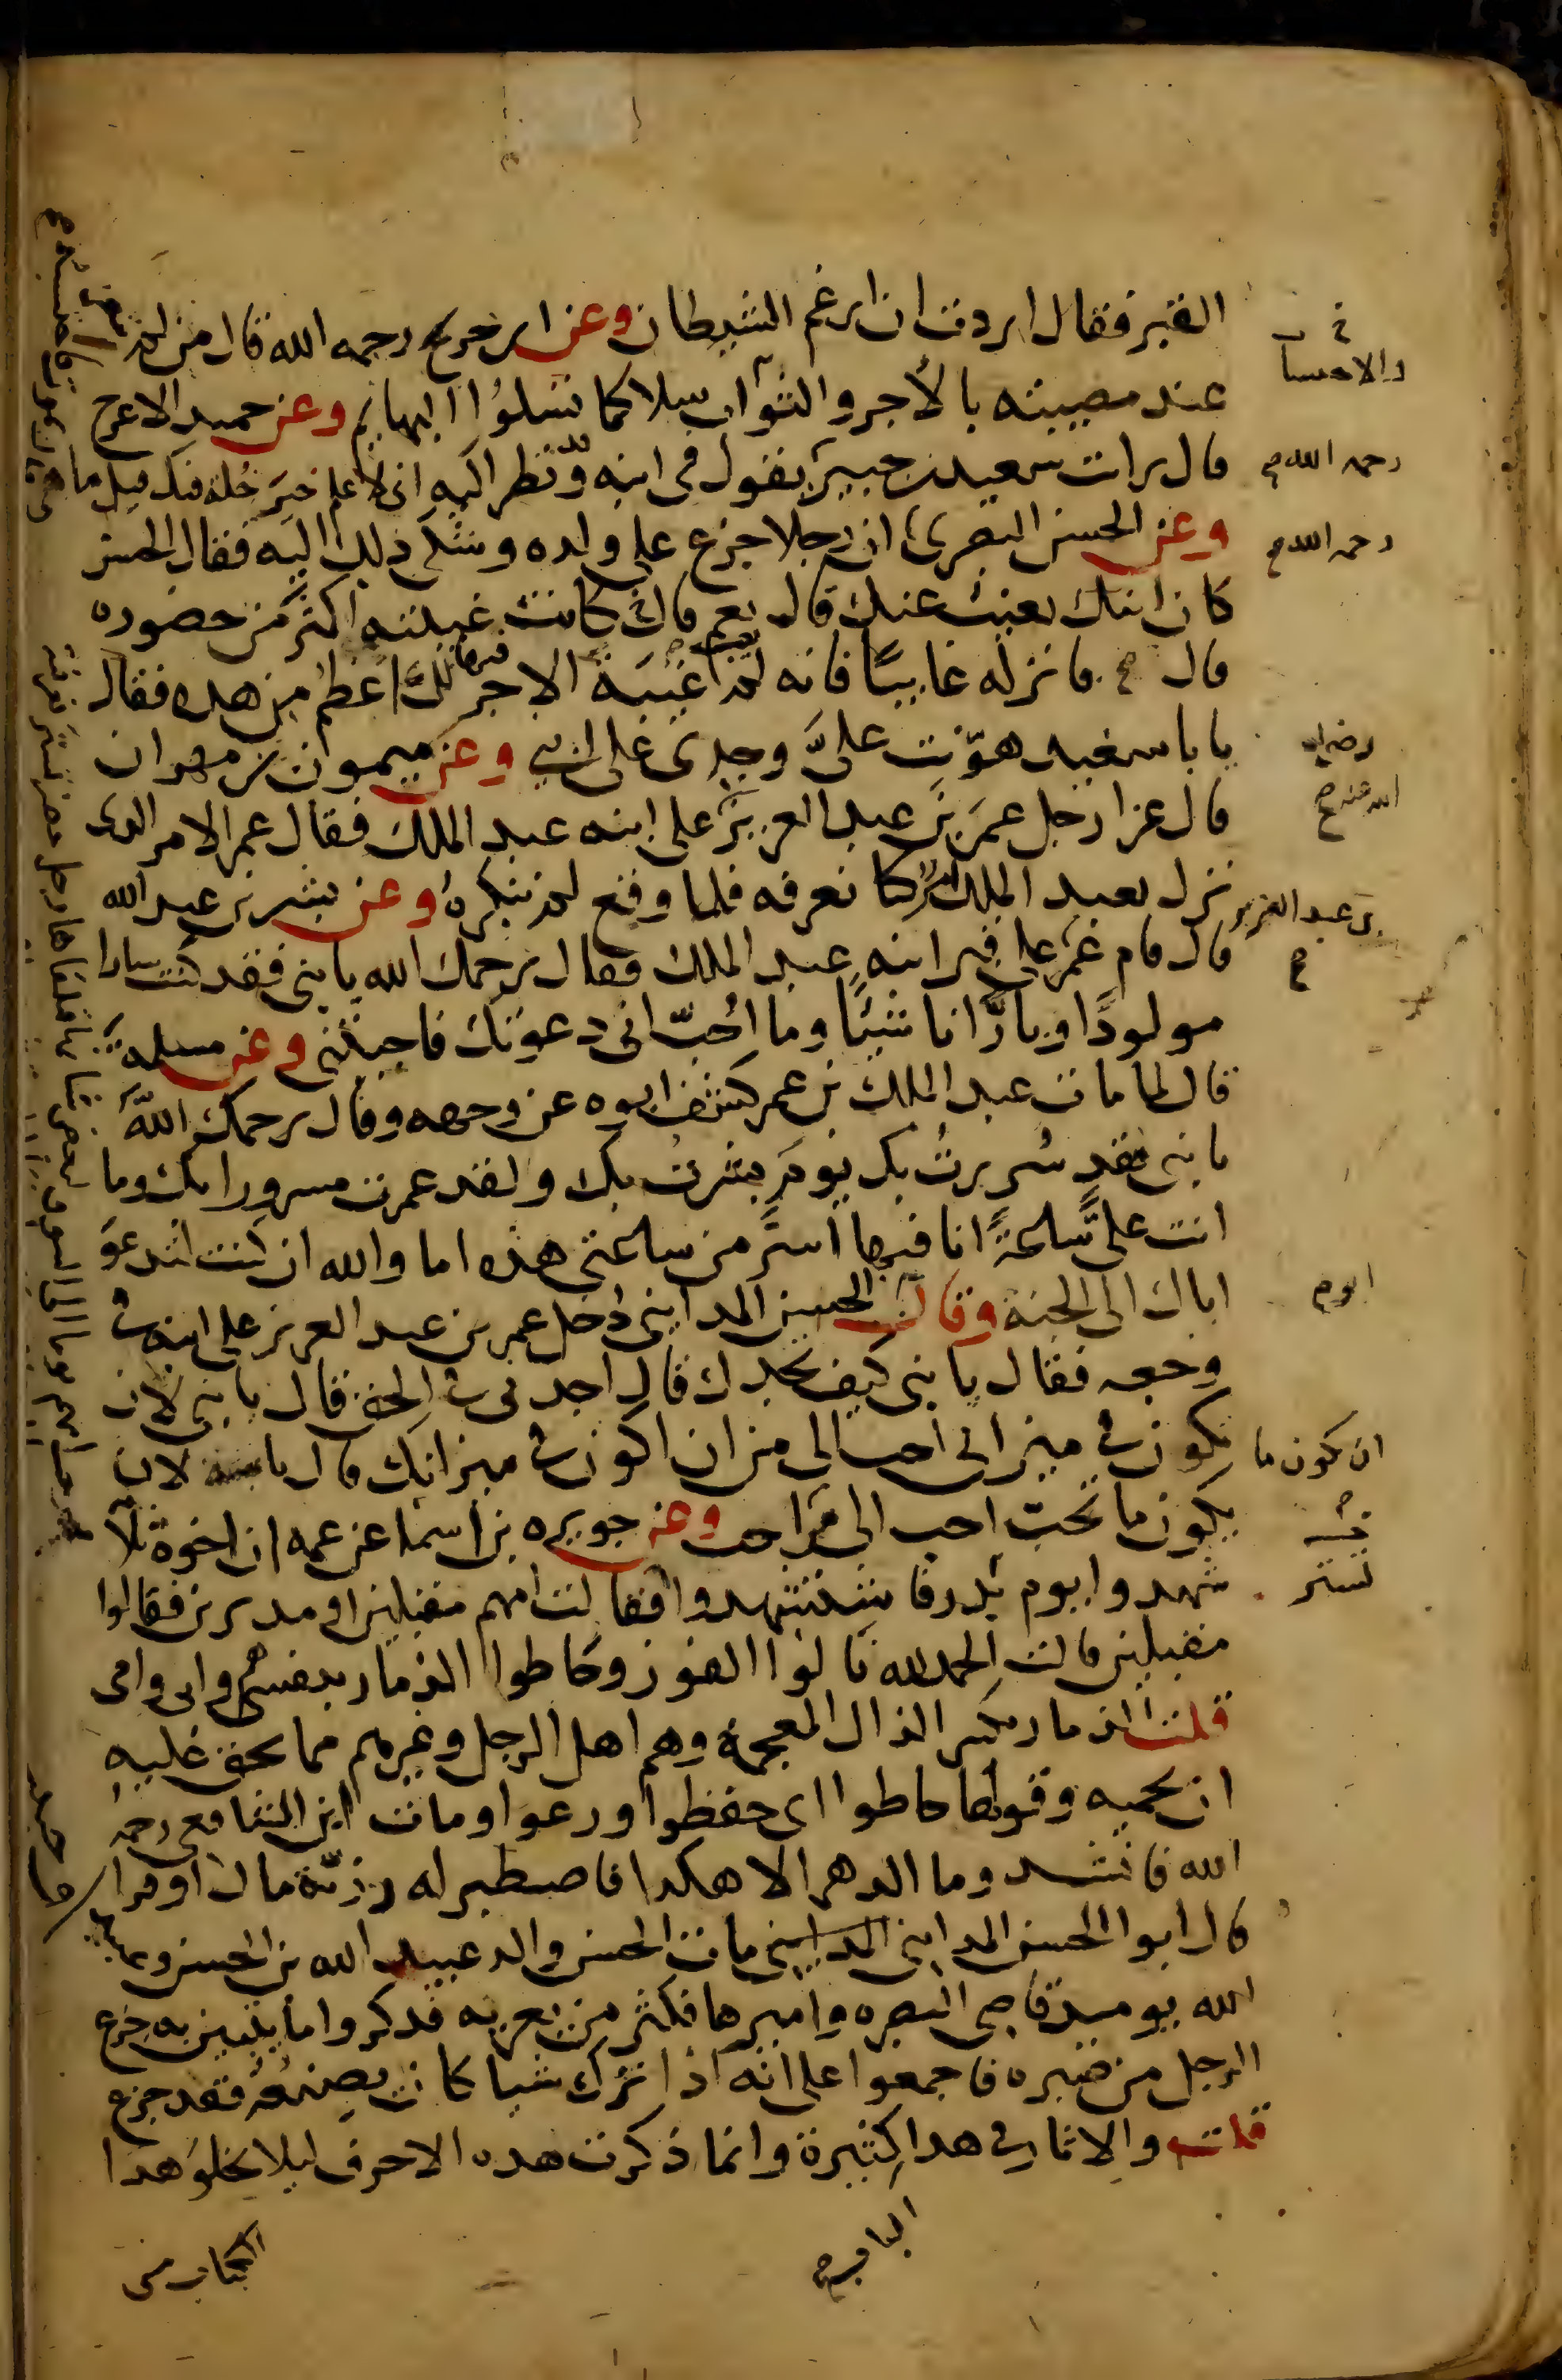 القبر فقال اردت ان ارغم الشيطان وعن ابن جريج رحمه الله قال من لم يتعز
عند مصيبته بالأجر والثواب سلا كما تسلوا البهايم وعن حميد الاعرج
قال رايت سعيد بن جبير يقول في ابنه ونظر اليه اني لاعلم خير خلة فيك قيل ما
وعن الحسن البصري ان رجلا جزع على ولده وشكى ذلك اليه فقال الحسن
كان ابنك يغيب عنك قال نعم كانت غيبته اكثر من حضوره
قال فانزله غايبا فانه لم يغب عنك غيبة الاجر لك فيها اعظم من هذه فقال
يابا سعيد هونت على وجدى على ابني وعن ميمون بن مهران
قال عزا رجل عمر بن عبد العزيز على ابنه عبد الملك فقال عمر الامر الذي
نزل بعبد الملك امر كنا نعرفه فلما وقع لم ننكره وعن بشر بن عبد الله
قال قام عمر على قبر ابنه عبد الملك فقال يرحمك الله يا بني فقد كنت سارا
مولودا وبارا ناشيا وما احب اني دعوتك فاجبتني وعن مسلمة
قال لما مات عبد الملك بن عمر كشف ابوه عن وجهه وقال رحمك الله
يا بني فقد سررت بك يوم بشرت بك ولقد عمرت مسرورا بك وما
اتت على ساعة انا فيها اسر من ساعتي هذه اما والله ان كنت لتدعو
اباك الى الجنة وقال الحسن المدايني دخل عمر بن عبد العزيز على ابنه في
وجعه فقال يا بني كيف تجدك قال اجدني في الحق قال يا بني لان
تكون في ميزاني احب الي من ان اكون في ميزانك قال يا ابه لان
يكون ما تحب احب الي من ما احب وعن جويرية بن اسما عن عمه ان اخوة ثلاثة
شهدوا يوم تستر فاستشهدوا فقالت امهم مقبلين او مدبرين فقالوا
مقبلين قالت الحمد لله نالوا الفوز وحاطوا الذمار بنفسي هم وابي وامي
قلت الذمار بكسر الذال المعجمة وهم اهل الرجل وغيرهم مما يحق عليه
ان يحميه وقولها حاطوا اي حفظوا ورعوا ومات ابن الشافعي رحمه
الله فانشد وما الدهر الا هكذا فاصطبر له رزية مال او فراق حبيب
قال ابو الحسن المدايني مات الحسن والد عبيد الله بن الحسن وعبيد
الله يوميذ قاضي البصره واميرها فكثر من يعزيه فذكروا ما يتبين به جزع
الرجل من صبره فاجمعوا على انه اذا ترك شيا كان يصنعه فقد جزع
قلت والاثار في هذا كثيرة وانما ذكرت هذه الاحرف ليلا يخلو هذا
الكتاب من
والاحتساب
رحمه الله صح
رحمه الله صح
رضي
الله عنه صح
بن عبد العزيز
صح
ابوه
ان يكون ما
تستر